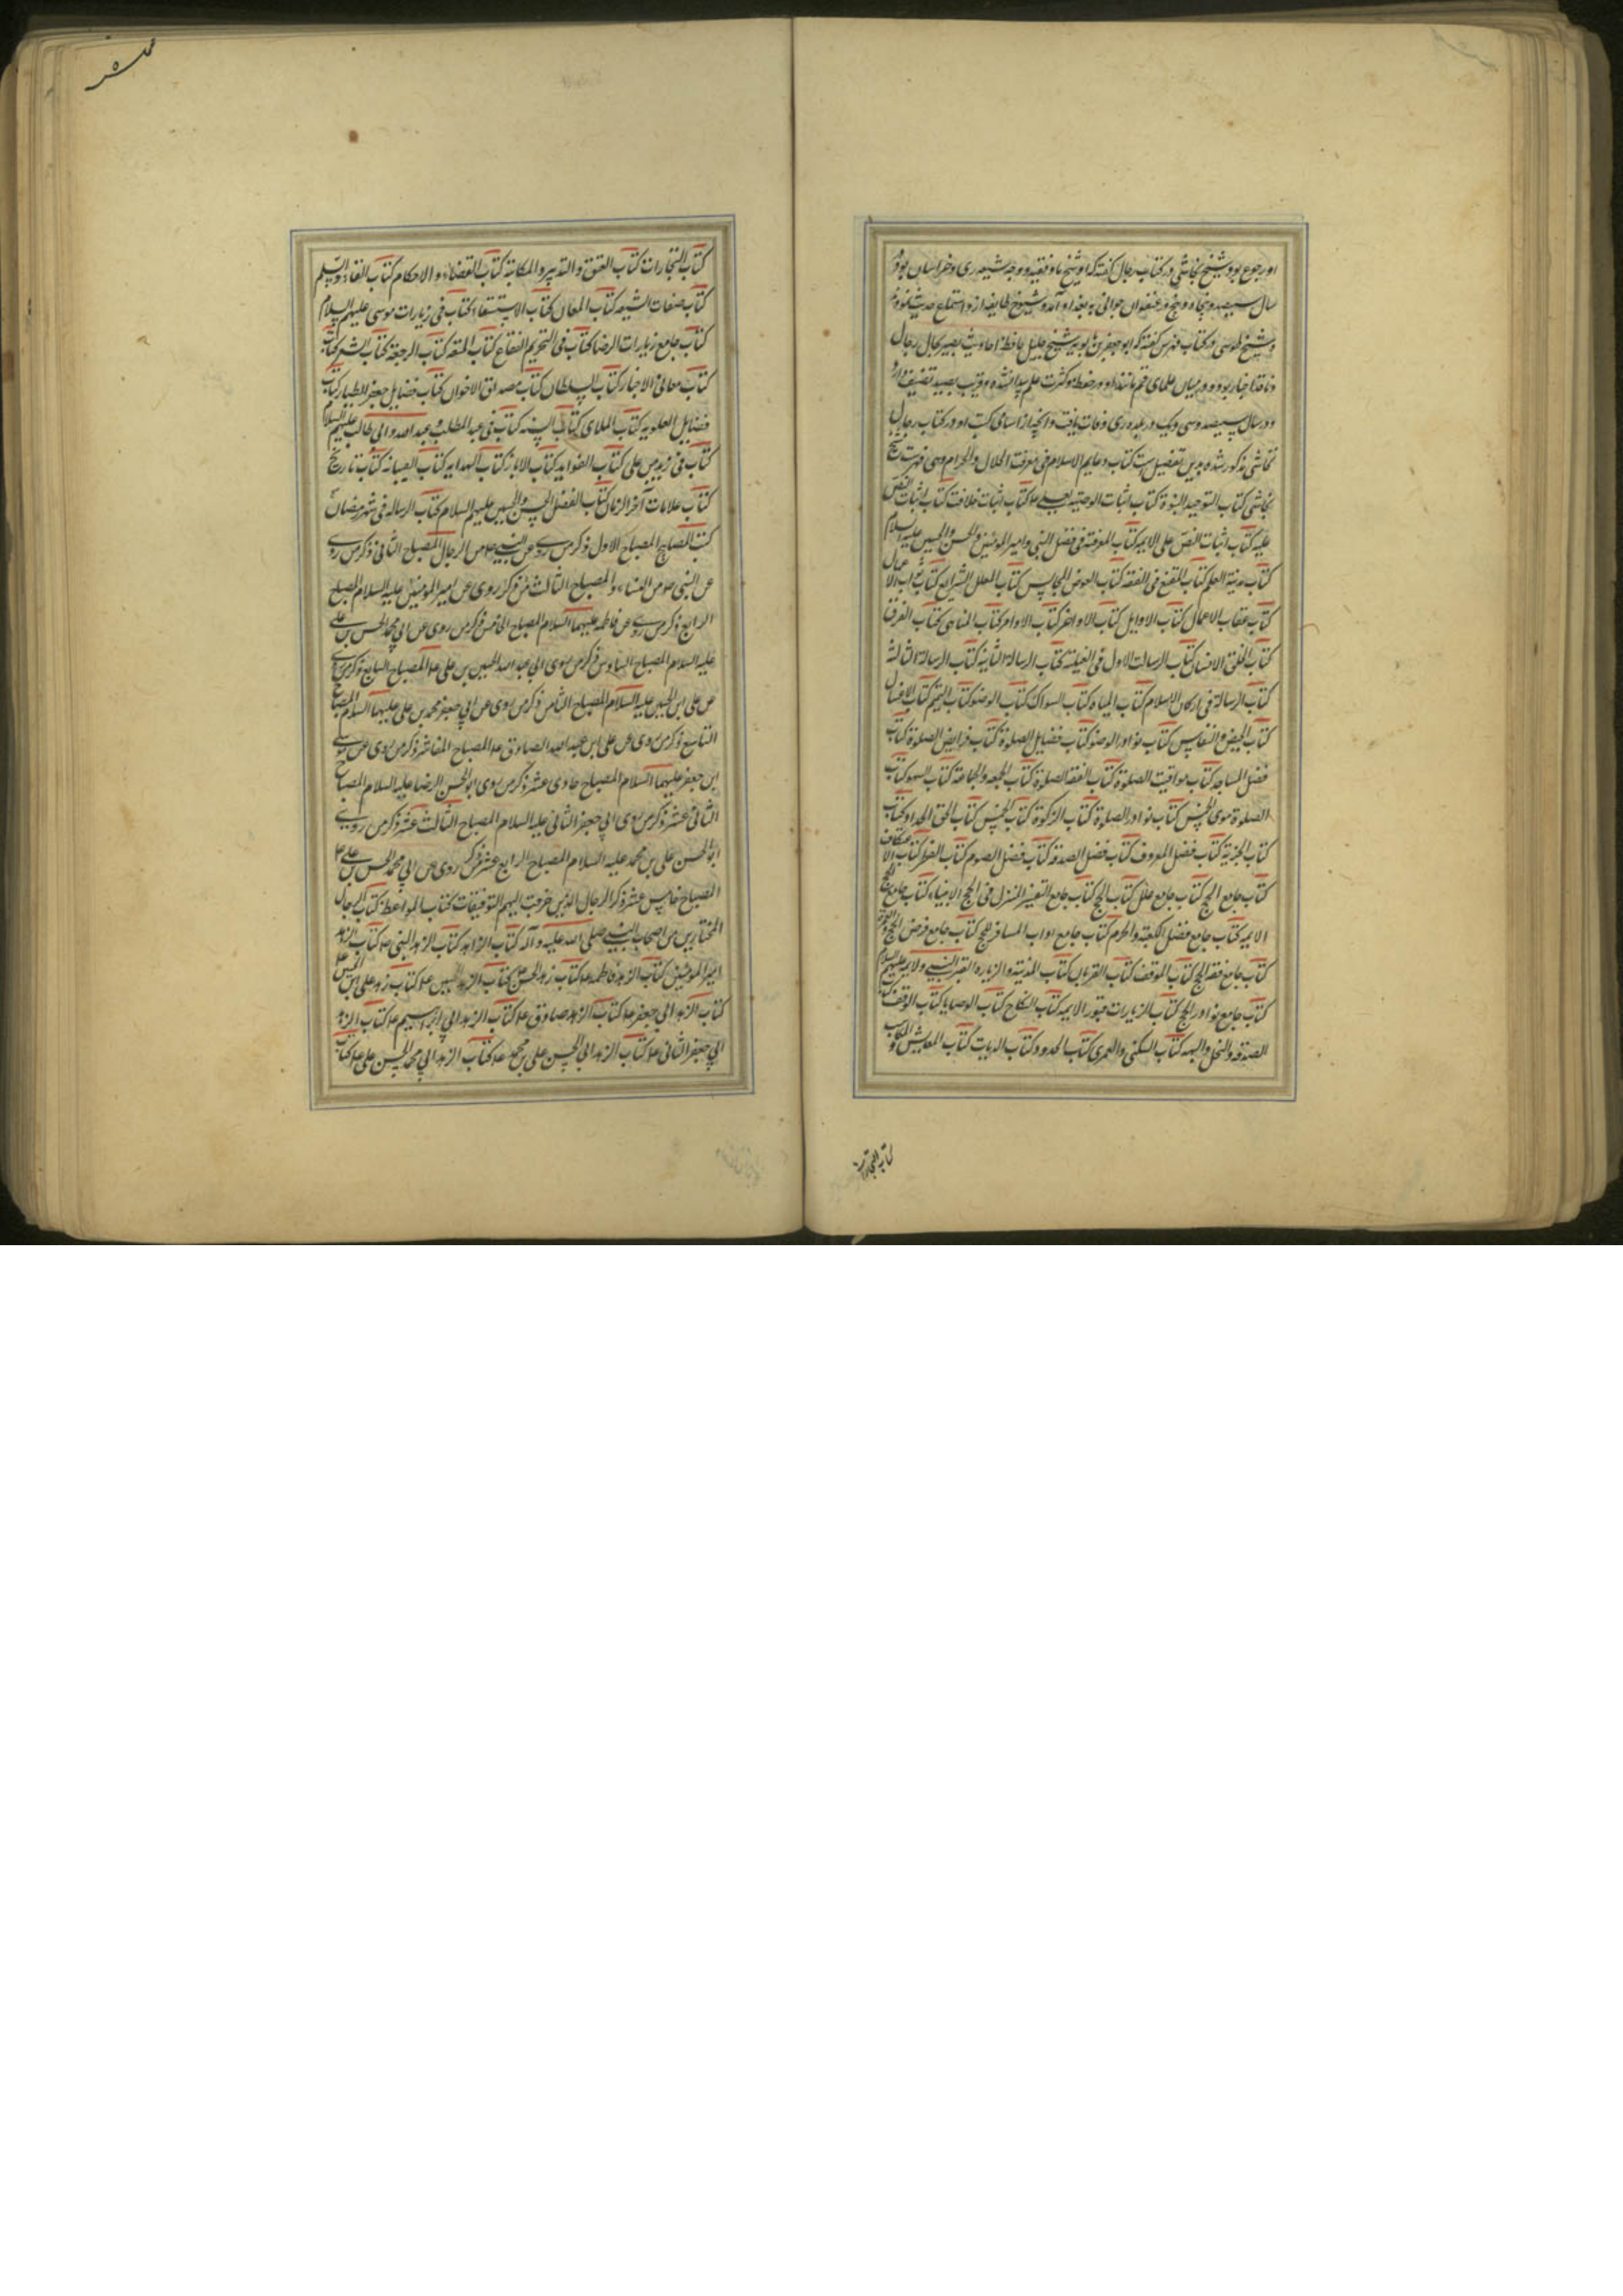 او رجوع بود و شیخ نجاشی در کتاب رجال گفته که او شیخ ما و فقیه و وجه شیعه ری و خراسان بود و در
سال سیصد و پنجاه و پنج در عنفوان جوانی به بغداد آمد و شیوخ طایفه از و استماع حدیث نمودند
و شیخ طوسی در کتاب فهرس گفته که ابو جعفر بن بابویه شیخ جلیل حافظ احادیث بصیر بحال رجال
و ناقد اخبار بود و در میان علمای قم مانند او در حفظ و کثرت علم پیدا نشده و قریب بصید تصنیف دارد
و در سال سیصد و سی و یک در بلده ری وفات یافت و آنچه از اسامی کتب او در کتاب رجال
نجاشی مذکور شده بدین تفصیل است کتاب دعایم الاسلام فی معرفت الحلال و الحرام و سی فهرست شیخ
نجاشی کتاب التوحید النبوة کتاب اثبات الوصیه لعلی ع کتاب اثبات خلافت کتاب اثبات النص
علیه کتاب اثبات النص علی الایمه کتاب المعرفته فی فضل النبی و امیر المومنین و الحسن و الحسین علیه السلام
کتاب مدنیة العلم کتاب المقنع فی الفقه کتاب العوض المجالس کتاب العلل الشرایع کتاب ثواب الاعمال
کتاب عقاب الاعمال کتاب الاوایل کتاب الاواخر کتاب الاوامر کتاب المناهی کتاب الفرق
کتاب الخلق الانسان کتاب الرسالت الاول فی الغیبة کتاب الرسالة الثانیه کتاب الرسالة الثالثه
کتاب الرسالة فی ارکان الاسلام کتاب المیاه کتاب السواک کتاب الوضو کتاب التیمم کتاب الاغسال
کتاب الحیض و النفاس کتاب نوادر الوضو کتاب فضایل الصلوة کتاب فرایض الصلوة کتاب
فضل المساجد کتاب مواقیت الصلوة کتاب الفقه الصلوة کتاب الجمعه و الجماعة کتاب السهو کتاب
الصلوة سوی الخمس کتاب نوادر الصلوة کتاب الزکوة کتاب الخمس کتاب الحق الجداد کتاب
کتاب الجزیه کتاب فضل المعروف کتاب فضل الصدقه کتاب فضل الصوم کتاب الفطر کتاب الاعتکاف
کتاب جامع الحج کتاب جامع علل کتاب الحج کتاب جامع التفسیر المنزل فی الحج الانبیاء کتاب جامع حج
الایمه کتاب جامع فضل الکعبة و الحرم کتاب جامع اداب المسافر للحج کتاب جامع فرض الحج و العمرة
کتاب جامع فقه الحج کتاب الموقف کتاب القربان کتاب المدینة و الزیاره القبر النبی و الایمه علیهم السلام
کتاب جامع نوادر الحج کتاب الزیارات قبور الایمه کتاب النکاح کتاب الوصایا کتاب الوقف کتاب
الصدقه و النحل و الهبه کتاب السکنی و العمری کتاب الحدود کتاب الدیات کتاب المعایش و المکاسب
کتاب التجارات
کتاب التجارات کتاب العتق و التدبیر و المکاتبة کتاب القضاء و الاحکام کتاب اللقاء و السلم
کتاب صفات الشیعه کتاب اللعان کتاب الاستسقا کتاب فی زیارات موسی علیهم السلام
کتاب جامع زیارات الرضا کتاب فی التحریم الفقاع کتاب المتعه کتاب الرجعة کتاب الشعر کتاب
کتاب معانی الاخبار کتاب السلطان کتاب مصداق الاخوان کتاب فضایل جعفر الطیار کتاب
فضایل العلویه کتاب الملاهی کتاب السنه کتاب فی عبد المطلب و عبد الله و ابی طالب علیهم السلام
کتاب فی زید بن علی کتاب الفواید کتاب الابانه کتاب الهدایه کتاب الضیافه کتاب تاریخ
کتاب علامات آخر الزمان کتاب الفضل الحسن و الحسین علیهم السلام کتاب الرساله فی شهر رمضان
کتب المصابیح المصباح الاول ذکر من روی عن النبی ص من الرجال المصباح الثانی ذکر من روی
عن النبی ص من النساء و المصباح الثالث من ذکر روی عن امیر المومنین علیه السلام المصباح
الرابع ذکر من روی عن فاطمه علیهما السلام المصباح الخامس ذکر من روی عن ابی محمد الحسن بن علی
علیه السلام المصباح السادس ذکر من روی ابی عبد الله الحسین بن علی ع المصباح السابع ذکر من روی
عن علی ابن الحسین علیه السلام المصباح الثامن ذکر من روی عن ابی جعفر محمد بن علی علیهما السلام المصباح
التاسع ذکر من روی عن علی ابن عبد الله الصادق ع المصباح العاشر ذکر من روی عن موسی
ابن جعفر علیهما السلام المصباح حادی عشر ذکر من روی ابو الحسن الرضا علیه السلام المصباح
الثانی عشر ذکر من روی ابی جعفر الثانی علیه السلام المصباح الثالث عشر ذکر من روی
ابو الحسن علی بن محمد علیه السلام المصباح الرابع عشر ذکر روی عن ابی محمد الحسن بن علی ع
المصباح خامس عشر ذکر الرجال الذین خرجت الیهم التوقیعات کتاب المواعظ کتاب الرجال
المختارین من اصحاب النبی صلی الله علیه و آله کتاب الزاهد کتاب الزهد النبی ص کتاب الزهد
امیر المومنین کتاب الزهد فاطمه ع کتاب زهد الحسن کتاب الزهد الحسین ع کتاب زهد علی ابن الحسین ع
کتاب الزهد ابی جعفر ع کتاب الزهد صادق ع کتاب الزهد ابی ابراهیم ع کتاب الزهد
ابی جعفر الثانی ع کتاب الزهد ابی الحسن علی بن محمد ع کتاب الزهد ابی محمد الحسن علی ع کتاب